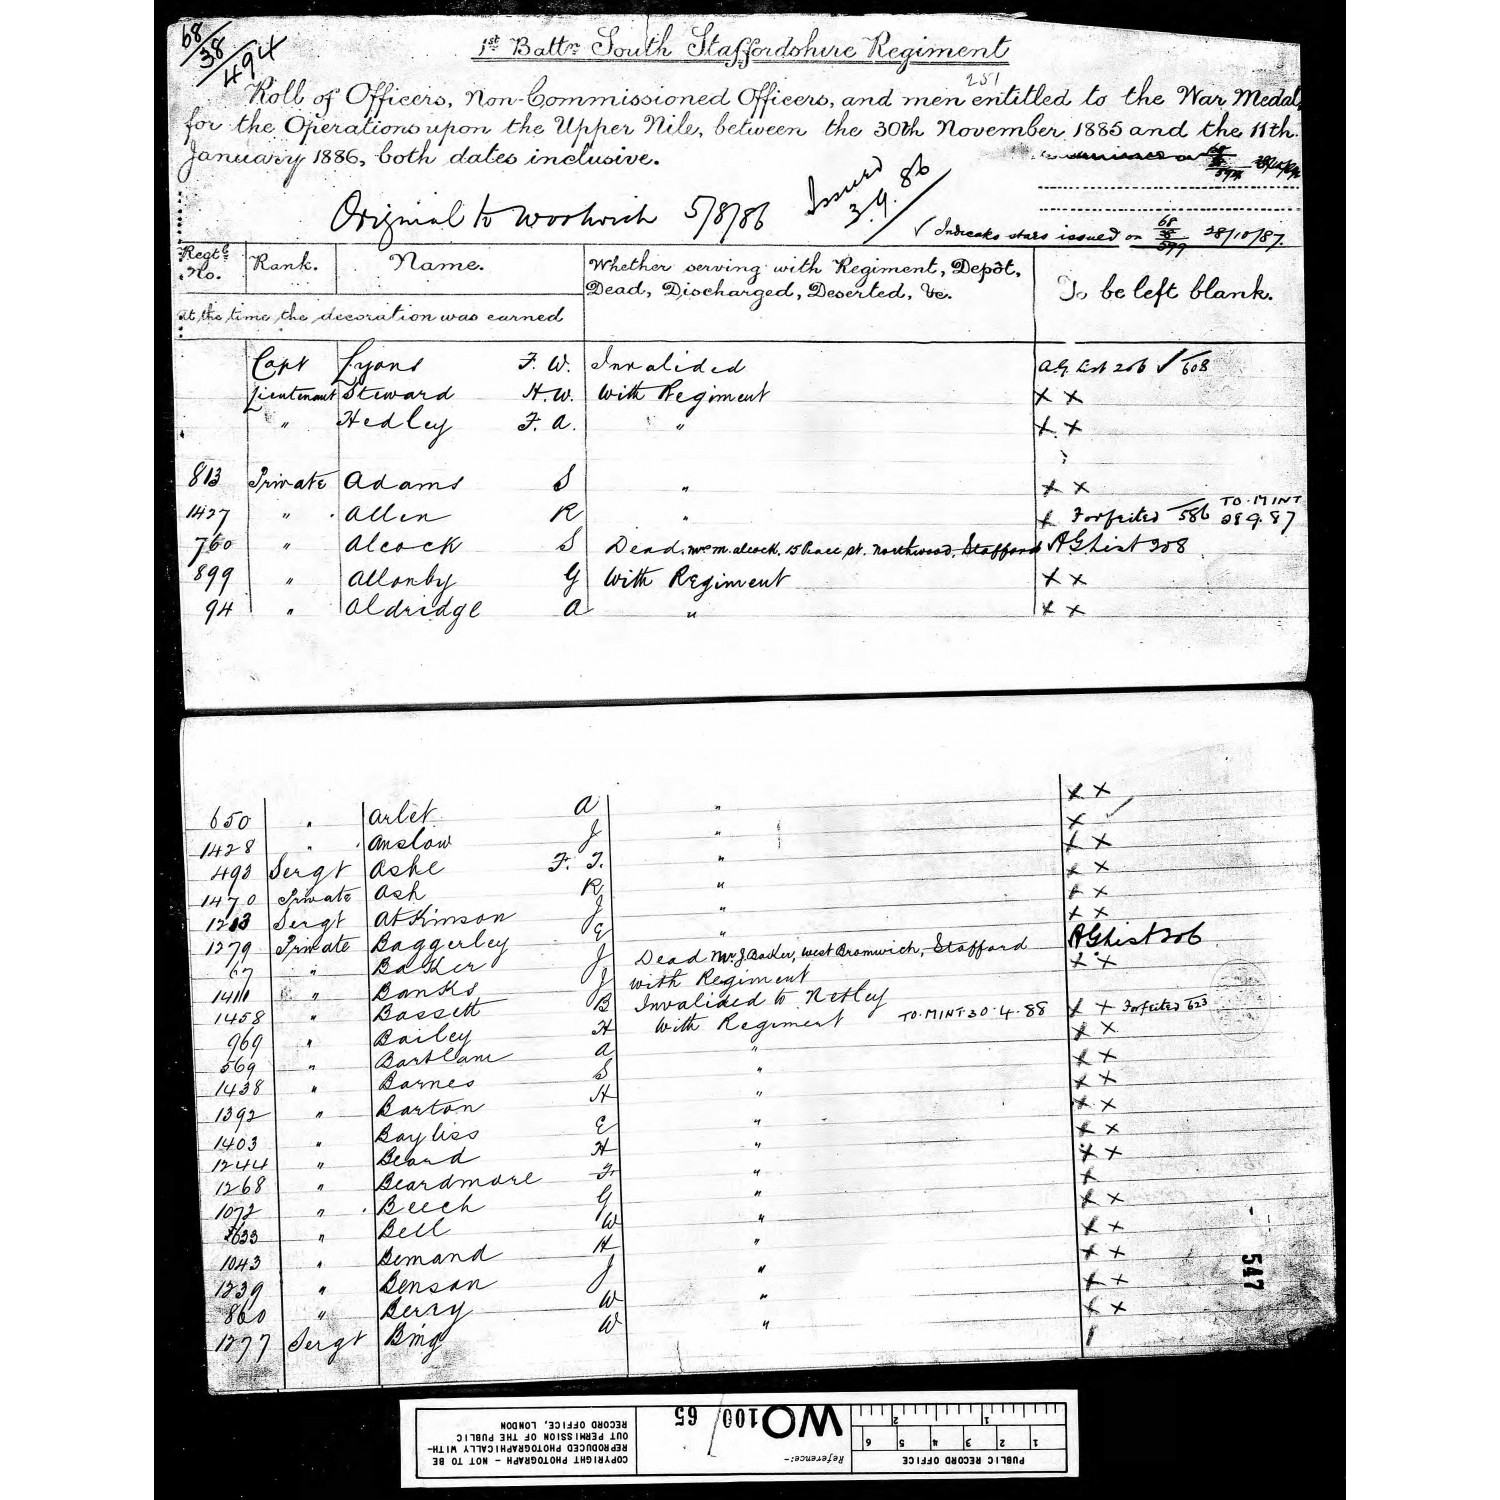 68/38/494
1st Battn South Staffordshire Regiment
251
Roll of Officers, Non-Commissioned Officers, and men entitled to the War Medal,
for the Operations upon the Upper Nile, between the 30th November 1885 and the 11th
January 1886, both dates inclusive.
Original to Woolwich 5/8/86 Issued 3.9.86
✓ Indicates stars issued on 68/38/599 28/10/87.
Regtl No. Rank. Name. Whether serving with Regiment, Depôt, Dead, Discharged, Deserted, &c. To be left blank.
At the time the decoration was earned
Capt Lyons F. W. Invalided A.G. List 206 ✓ 608
Lieutenant Steward H.W. With Regiment x x
" Hedley F. A. " x x
813 Private Adams S " x x
1427 " Allen R " x Forfeited 586 TO. MINT 28 9.87
760 " Alcock S Dead. Mr M. Alcock, 15 Race St. Northwood, Stafford AG List 208
899 " Allonby G With Regiment x x
94 " Aldridge A " x x
650 " Arlet A " x x
1428 " Anslow J " x ✓
493 Sergt Ashe F. T. " x x
1470 Private Ash R " x x
1213 Sergt Atkinson J " x x
1279 Private Baggerley E " x x
67 " Baker J Dead Mr J. Baker, West Bromwich, Stafford AG List 206
1411 " Banks J With Regiment x x
1458 " Bassett B Invalided to Netley
969 " Bailey H With Regiment TO. MINT 30.4.88 x x Forfeited 623
569 " Bartlam A " x x
1438 " Barnes S " x x
1392 " Barton H " x x
1403 " Bayliss E " x x
1244 " Beard H " x x
1268 " Beardmore F " x x
1072 " Beech G " x
1633 " Bell W " x x
1043 " Bemand H " x x
1239 " Benson J " x x
860 " Berry W " x x
1277 Sergt Bing W " x x
547
PUBLIC RECORD OFFICE
1 2 3 4 5 6
1 2
Reference:-
WO 100/65
COPYRIGHT PHOTOGRAPH - NOT TO BE
REPRODUCED PHOTOGRAPHICALLY WITH-
OUT PERMISSION OF THE PUBLIC
RECORD OFFICE, LONDON